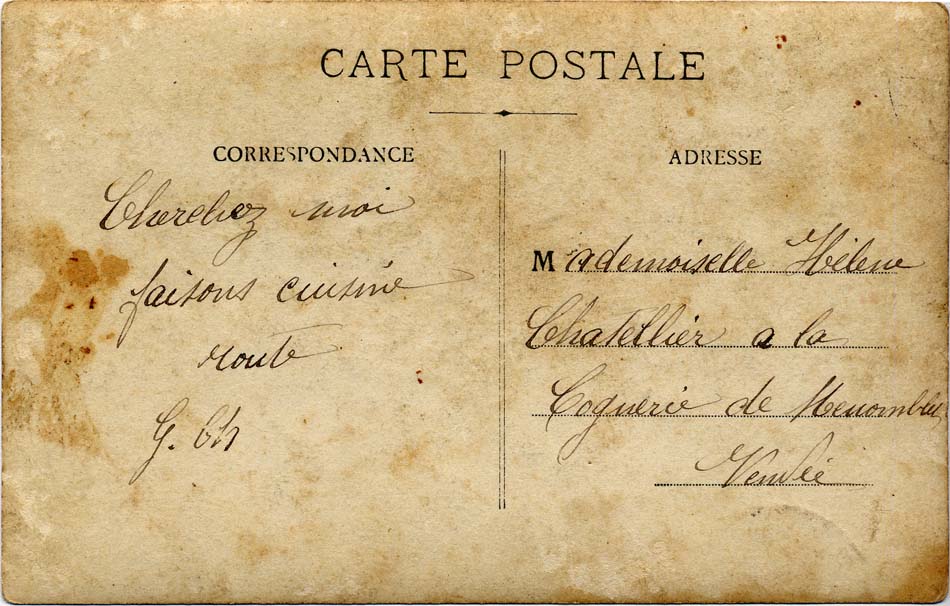 CARTE POSTALE
CORRESPONDANCE
ADRESSE
Cherchez moi
faisons cuisine
route
G. Ch
Mademoiselle Hélène
Chatellier a la
Coguerie de
Vendée